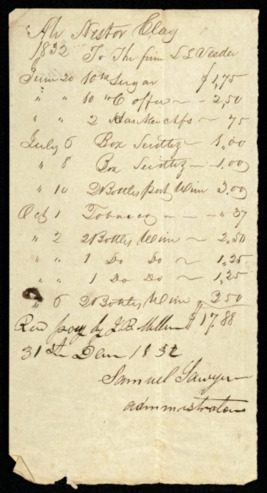 Mr Nestor Clay
1832 To The firm L S Veeder
June 20 10 lb Sugar $1,75
" " 10 " Coffee ~ - 2,50
" " 2 Hankerchfs ~ 75
July 6 Box 1.00
" 8 Box 1.00
" 10 2 Bottles port Wine 3.00
Oct 1 Tobacco - - - " 37
" 2 2 Bottles Wine ~ 2.50
" " 1 Do Do ~ 1,25
" " 1 Do Do ~ 1,25
" 6 2 Bottles Wine 2.50
Recd pay by J B Miller $17.88
31st 1832
Samuel Sawyer
administrator